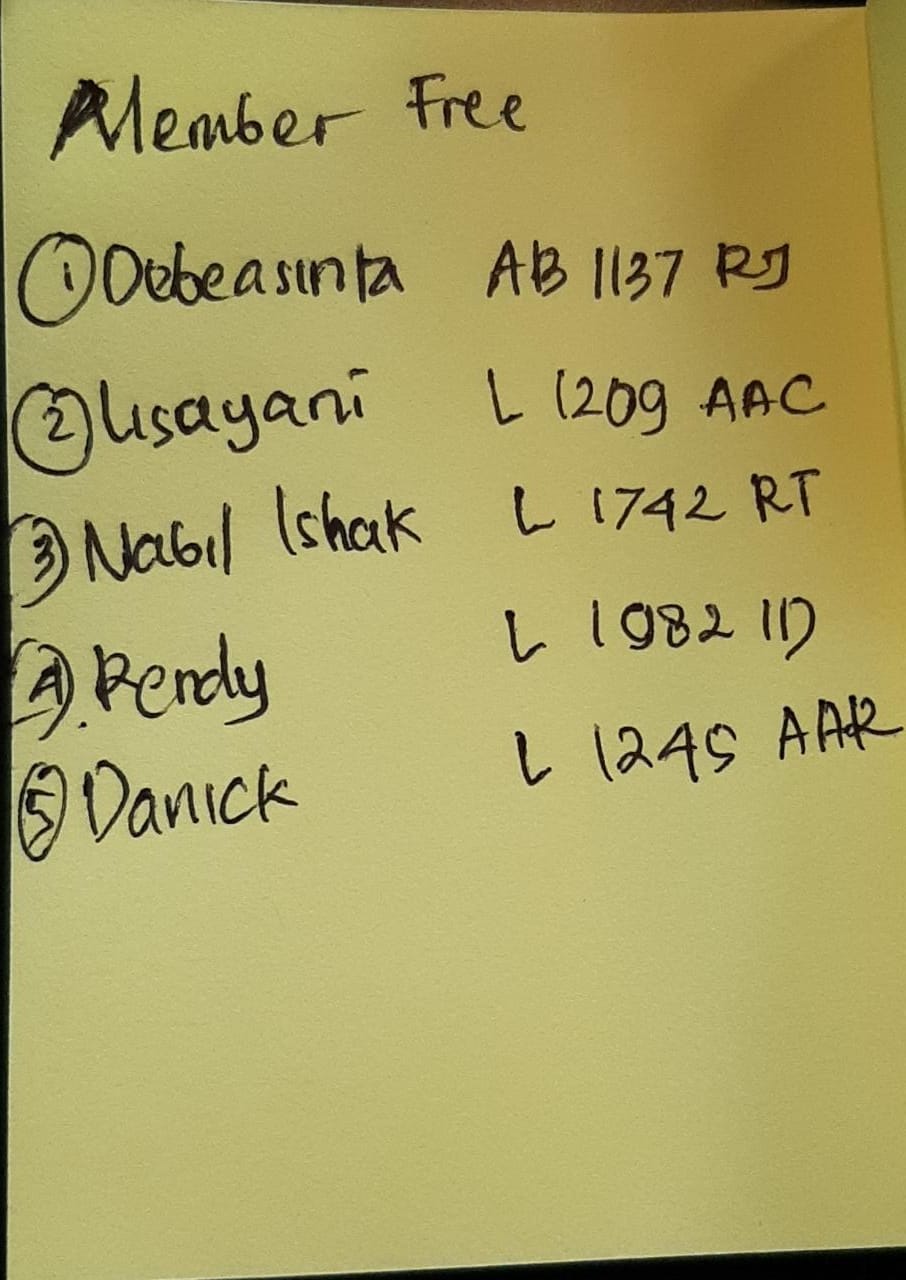 Member Free
① Debeasinta AB 1137 RJ
② Lisayani L 1209 AAC
③ Nabil Ishak L 1742 RT
④. Rendy L 1982 ID
⑤ Danick L 1245 AAR